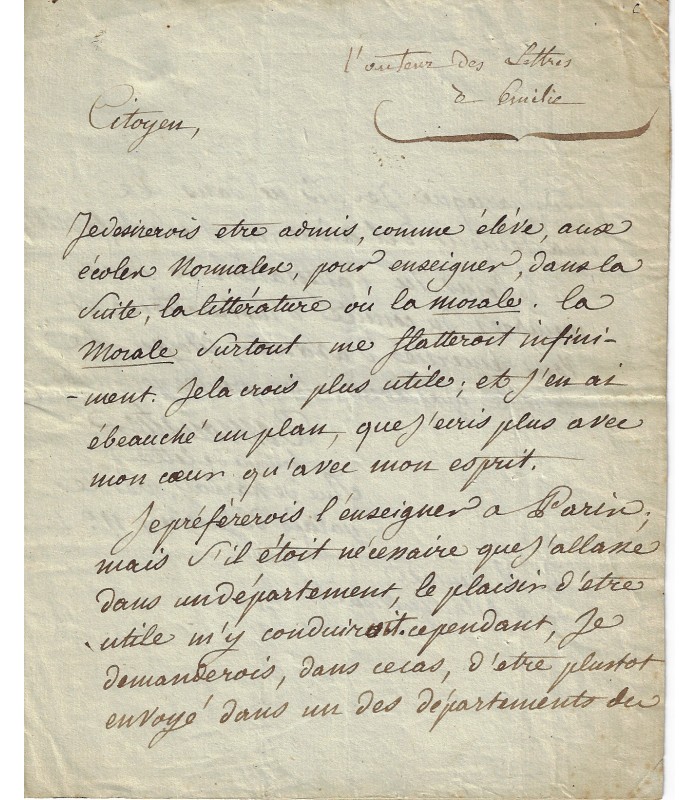 l'auteur des Lettres
à Emilie
Citoyen,
Je desirerois etre admis, comme éléve, aux
écoles Normales, pour enseigner, dans la
suite, la littérature où la morale. la
Morale surtout me flatteroit infini-
-ment. Je la crois plus utile; et j'en ai
ébeauché un plan, que j'ecris plus avec
mon cœur qu'avec mon esprit.
Je préférerois l'enseigner a Paris;
mais s'il étoit nécessaire que j'allasse
dans un département, le plaisir d'etre
utile m'y conduiroit. cependant, Je
demanderois, dans ce cas, d'etre plustot
envoyé dans un des départements du